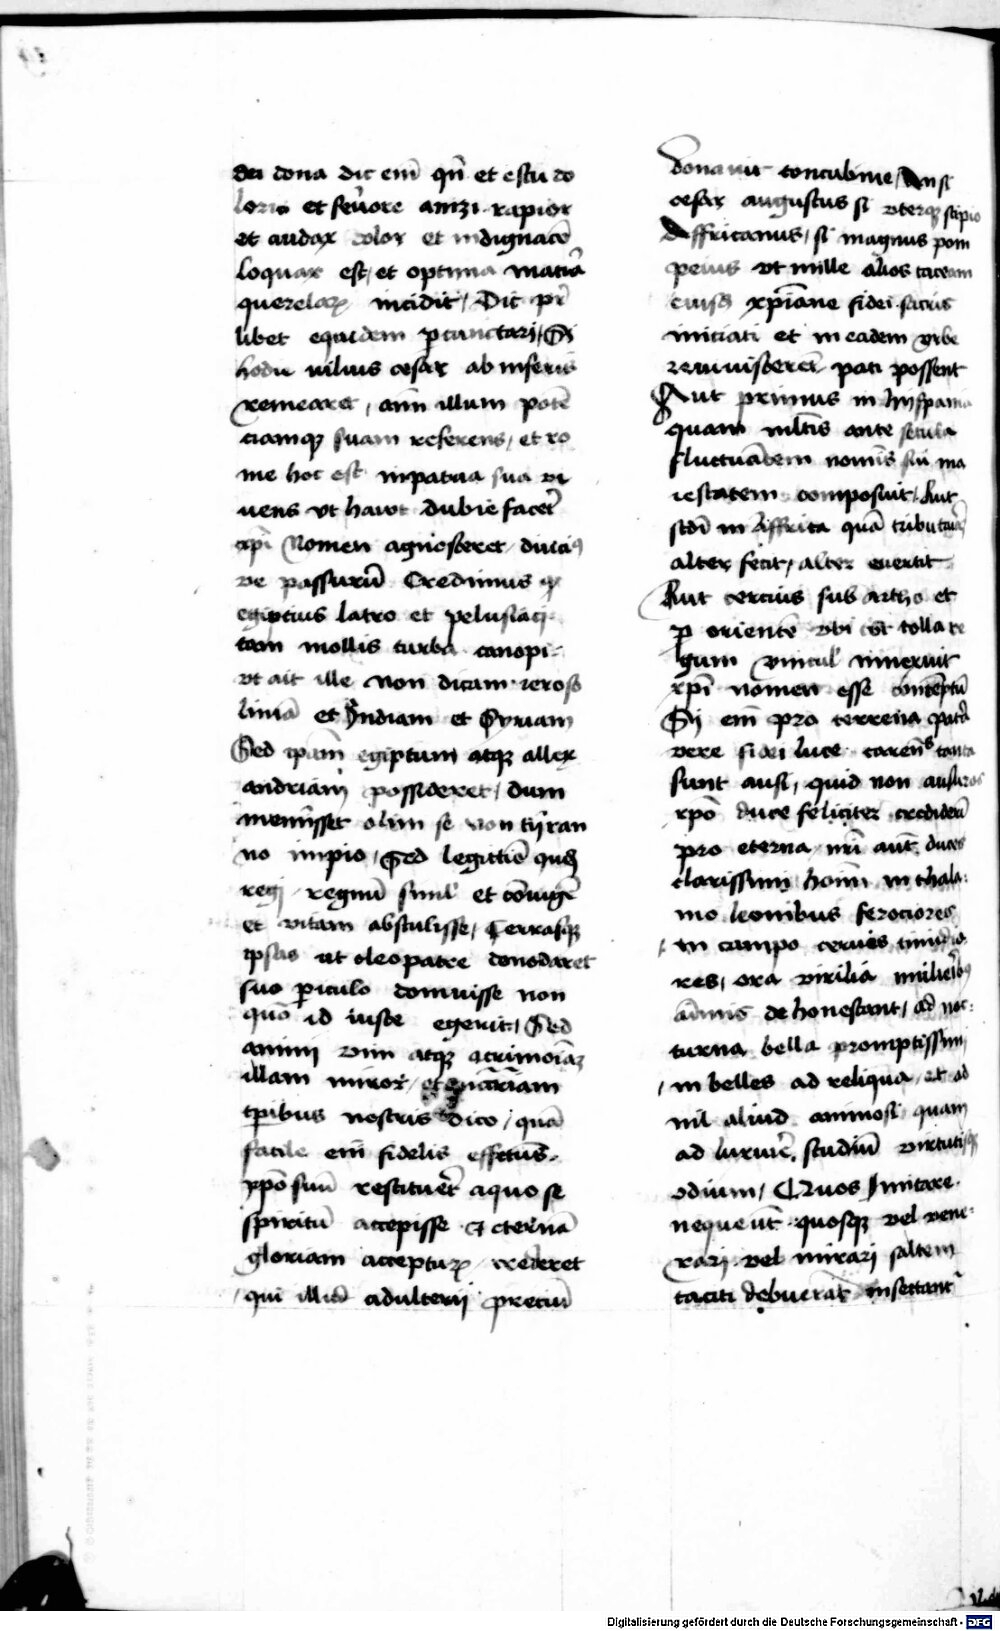 dei dona dic em̄ qn̄ et estu do
loris et feruore animi rapior
et audax dolor et indignacō
loquax est, et optima materia
querelarꝝ incidit / Dic pr̄
libet equidem ꝑcunctari / Si
hodie iulius cesar ab inferis
remearet, anīm illum potē
ciamqꝫ suam referens, et ro
me hoc est in patria sua vi
uens vt haut dubie facer̄et
xp̄i Nomen agnosceret / diuciꝰ
ve passurū Credimus ꝙ
egiptius latro et pelusiaci
tam mollis turba canopi
vt ait ille non dicam ieroso
limā et Judiam et Syriam
Sed ip̄am egiptum atqꝫ allex
andriam possideret / dum
meminisset olim se non tiran
no impio, Sed legittīe quidem
regi regnū simul et coniugē
et vitam abstulisse, Terrasqꝫ
ipsas ut cleopatre donodaret
suo ꝑiculo domuisse non
quō id iuste egerit / Sed
animi vim atqꝫ acrimoīaꝫ
illam miror / et
tꝑibus nostris dico / quā
facile em̄ fidelis effectus
xp̄o suū restituer̄et a quo se
spiritū accepisse & eternā
gloriam acceptuꝝ crederet
qui illud adulterij preciū
donauit concubine, An si
cesar augustus si vterqꝫ scipio
Affricanus, si magnus pom
peius vt mille alios taceam
eiusdē xp̄iane fidei sacris
iniciati et in eadem vrbe
reuiuiscerent pati possent
Aut primus in hyspania
quam multis ante secula
fluctuātem nominis sui ma
iestatem composuit, Aut
scd̄i in Affrica quā tributariā
alter fecit, alter euertit
Aut tercius sub artho et
ꝑ orientē vbi tot colla re
gum vincul iniecit
xp̄i nomen esse contēptū
Si em̄ pro terrena patria
vere fidei luce carentes tanta
sunt ausi, quid non ausuros
xp̄o duce feliciter crediderim
pro eterna, nr̄i aūt duces
clarissimi hoīm in thala
mo leonibus ferociores
in campo ceruis timidio
res, ora virilia muliebribꝰ
animis dehonestant, ad noc
turna bella promptissimi
inbelles ad reliqua, et ad
nil aliud animosi quam
ad luxurie, studiū virtutisqꝫ
odium / Quos Imitare
nequeūt quosqꝫ vel vene
rari vel mirari saltem
taciti debuerāt insectantᷣ